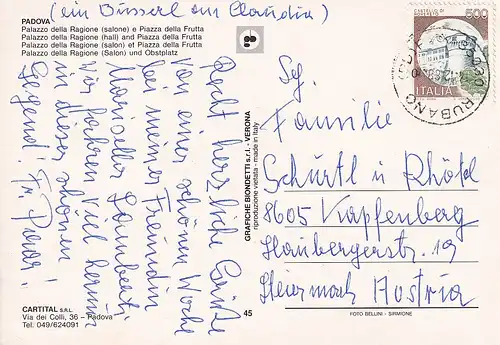 (ein Busserl an Claudia)
PADOVA
Palazzo della Ragione (salone) e Piazza della Frutta
Palazzo della Ragione (hall) and Piazza della Frutta
Palazzo della Ragione (salon) et Piazza della Frutta
Palazzo della Ragione (Salon) und Obstplatz
Recht herzliche Grüße
von einer schönen Woche
bei meiner Freundin
Maricella Lamberti.
Wir fahren viel herum
in dieser schönen
Gegend! Fr.
CARTITAL S.R.L.
Via dei Colli, 36 – Padova
Tel. 049/624091
45
GRAFICHE BIONDETTI s.r.l. - VERONA
riproduzione vietata - made in Italy
500
ITALIA
RUBANO
Sg.
Familie
Schürtl u Rhötel
8605 Kapfenberg
Haubergerstr. 19
Steiermark Austria
FOTO BELLINI - SIRMIONE